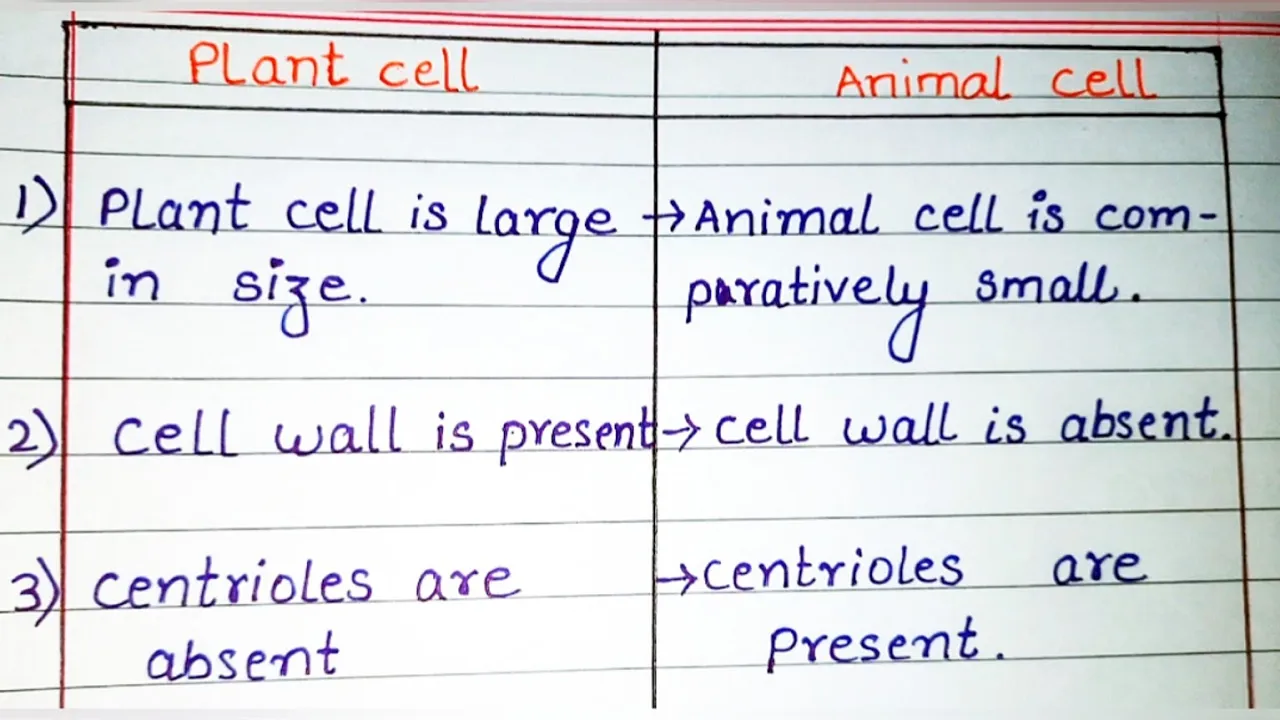 Plant cell
Animal cell
1) Plant cell is large
in size.
→ Animal cell is com-
paratively small.
2) Cell wall is present
→ cell wall is absent.
3) Centrioles are
absent
→ centrioles are
Present.